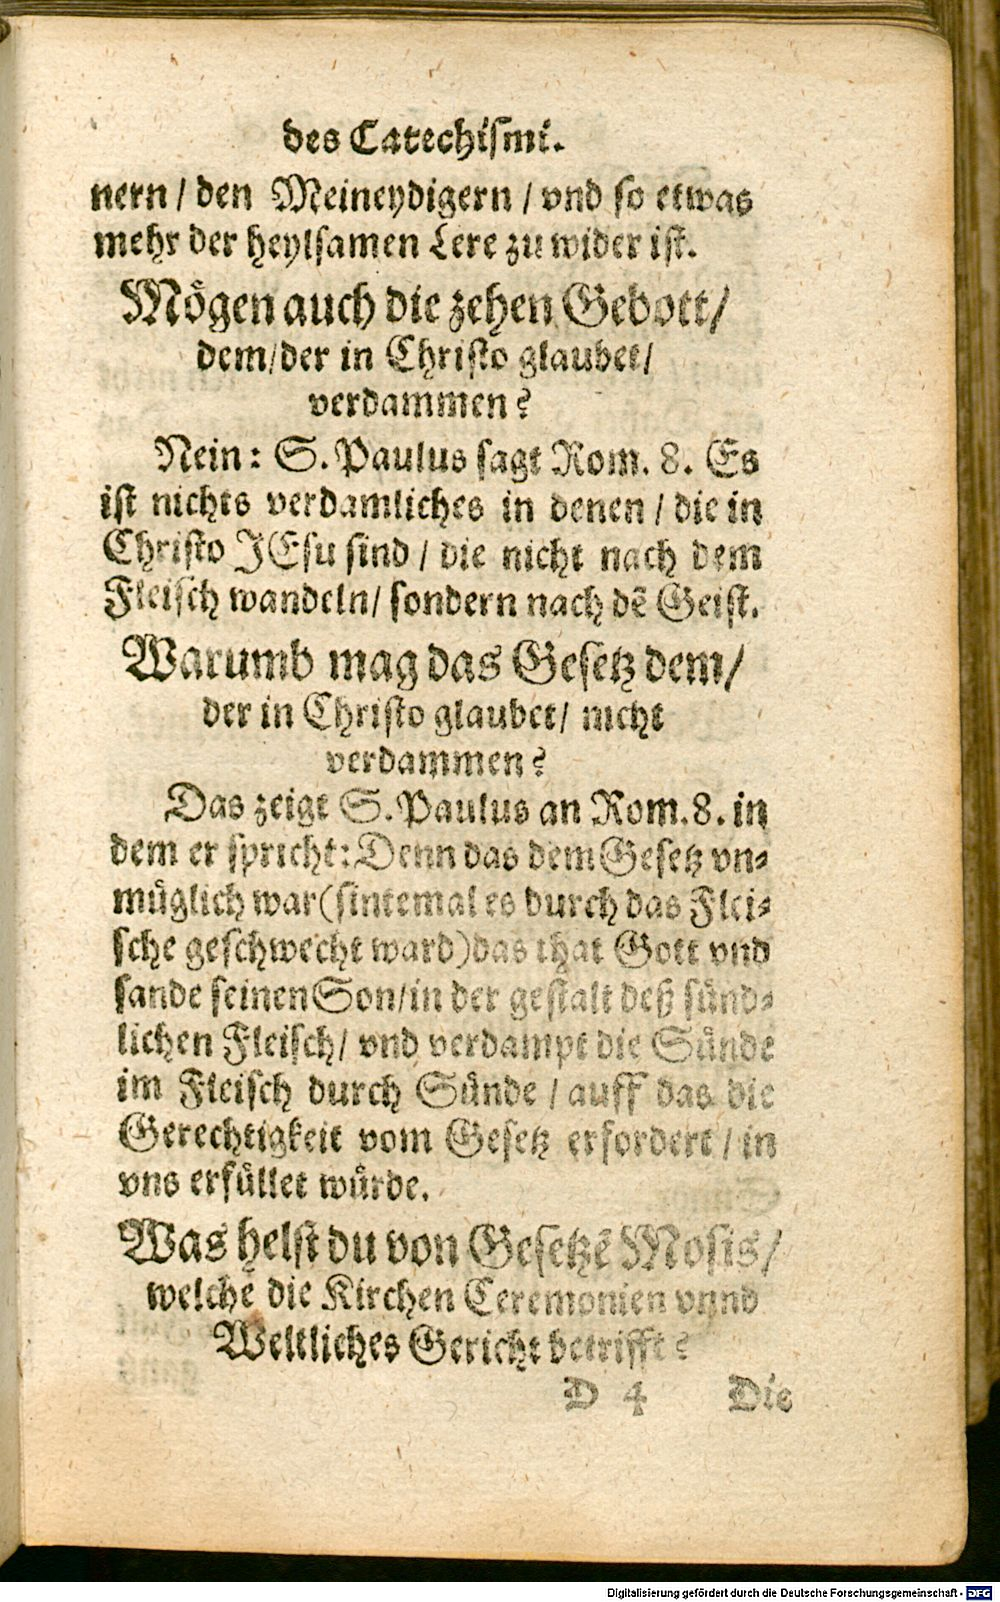 des Catechismi.
nern / den Meineydigern / vnd so etwas
mehr der heylsamen Lere zu wider ist.
Mögen auch die zehen Gebott /
dem / der in Christo glaubet /
verdammen?
Nein: S. Paulus sagt Rom. 8. Es
ist nichts verdamliches in denen / die in
Christo JEsu sind / die nicht nach dem
Fleisch wandeln / sondern nach dē Geist.
Warumb mag das Gesetz dem /
der in Christo glaubet / nicht
verdammen?
Das zeigt S. Paulus an Rom. 8. in
dem er spricht: Denn das dem Gesetz vn-
müglich war (sintemal es durch das Flei-
sche geschwecht ward) das that Gott vnd
sande seinen Son / in der gestalt deß sünd-
lichen Fleisch / vnd verdampt die Sünde
im Fleisch durch Sünde / auff das die
Gerechtigkeit vom Gesetz erfordert / in
vns erfüllet würde.
Was helst du von Gesetzē Mosis /
welche die Kirchen Ceremonien vnnd
Weltliches Gericht betrifft?
D 4 Die
Digitalisierung gefördert durch die Deutsche Forschungsgemeinschaft - DFG